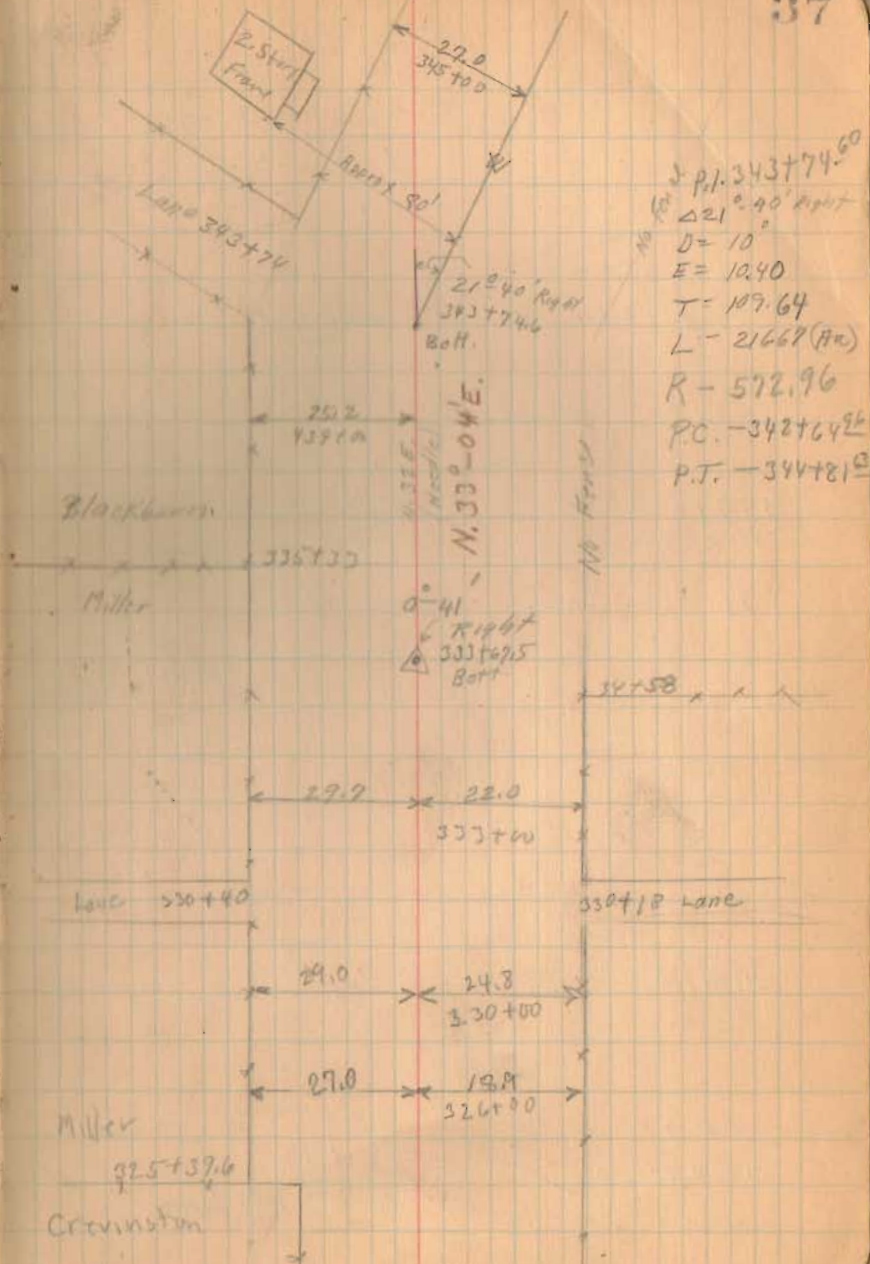 37
2. Story
Frame
27.0
345+00
Approx 80'
Lane 343+74
21° 40' Right
343+74.6
Bott.
No Fence
P.I. 343+74.60
Δ 21° 40' Right
D = 10°
E = 10.40
T = 109.64
L - 216.67 (Arc)
R - 572.96
P.C. - 342+64 96
P.T. - 344+81 63
25.2
N. 32 E.
Needle
N. 33° - 04' E.
No Fence
Blackburn
335+33
Miller
0° - 41
Right
333+67.5
Bott
34+58
29.7
22.0
333+00
Lane 330+40
330+18 Lane
29.0
24.8
330+00
27.0
326+00
Miller
325+39.6